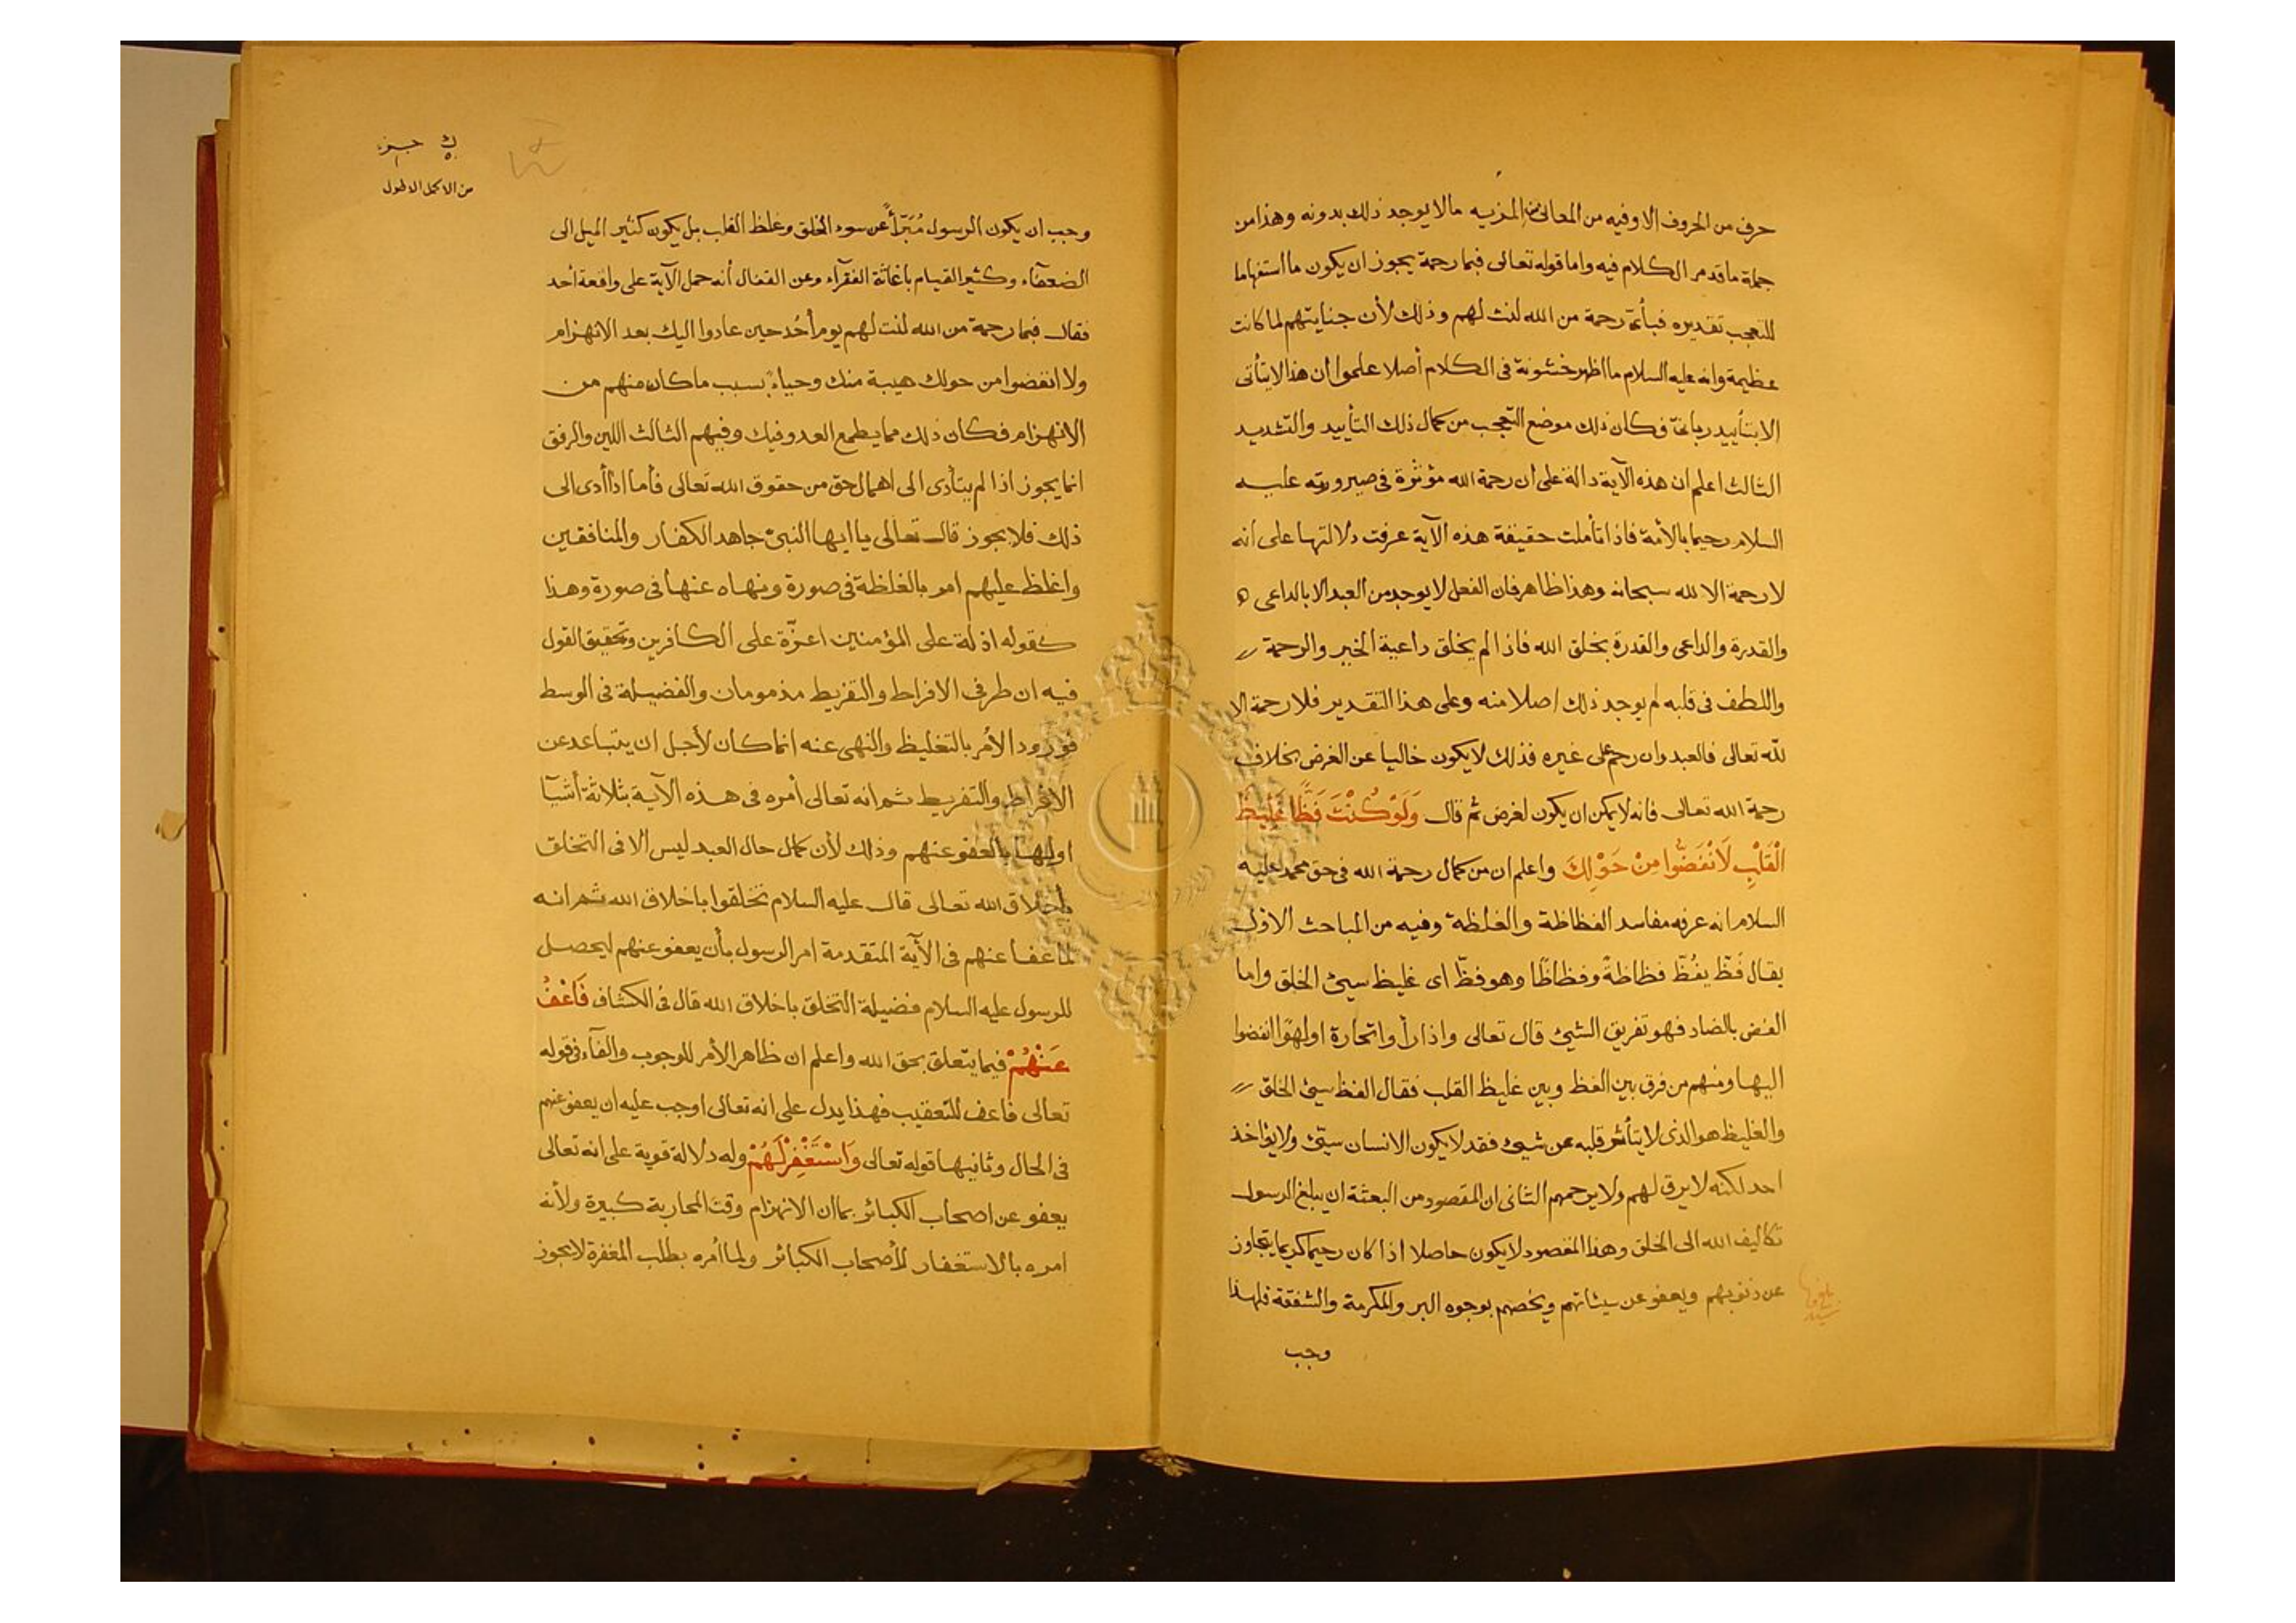 حرف من الحروف الا وفيه من المعانى المزيه مالا يوجد ذلك بدونه وهذا من
جملة ما قد مر الكلام فيه واما قوله تعالى فبما رحمة يجوز ان يكون ما استفهاما
للتعجب تقديره فبأىّ رحمة من الله لنت لهم وذلك لأن جنايتهم لما كانت
عظيمة وانه عليه السلام ما اظهر خشونة فى الكلام أصلا علموا ان هذا لا يتأتى
الا بتأييد ربانىّ فكان ذلك موضع التعجب من كمال ذلك التأييد والتشديد
الثالث اعلم ان هذه الآية دالة على ان رحمة الله مؤثرة فى صيرورته عليه
السلام رحيما بالأمة فاذا تأملت حقيقة هذه الآية عرفت دلالتها على أنه
لا رحمة الا لله سبحانه وهذا ظاهر فان الفعل لا يوجد من العبد الا بالداعى
والقدرة والداعى والقدرة بخلق الله فاذا لم يخلق داعية الخير والرحمة
واللطف فى قلبه لم يوجد ذلك اصلا منه وعلى هذا التقدير فلا رحمة الا
لله تعالى فالعبد وان رحم على غيره فذلك لا يكون خاليا عن الغرض بخلاف
رحمة الله تعالى فانه لا يمكن ان يكون لغرض ثم قال وَلَوْ كُنْتَ فَظًّا غَلِيظَ
الْقَلْبِ لَانْفَضُّوا مِنْ حَوْلِكَ واعلم ان من كمال رحمة الله فى حق محمد عليه
السلام انه عرفه مفاسد الفظاظة والغلظة وفيه من المباحث الاول
يقال فَظّ يفُظّ فظاظةً وفظاظًا وهو فظّ اى غليظ سيئ الخلق واما
الفض بالضاد فهو تفريق الشيئ قال تعالى واذا رأوا تجارة او لهوًا انفضوا
اليها ومنهم من فرق بين الفظ وبين غليظ القلب فقال الفظ سيئ الخلق
والغليظ هو الذى لا يتأثر قلبه عن شيئ فقد لا يكون الانسان سيّئ ولا يؤاخذ
احد لكنه لا يرق لهم ولا يرحمهم الثانى ان المقصود من البعثة ان يبلغ الرسول
تكاليف الله الى الخلق وهذا المقصود لا يكون حاصلا اذا كان رحيما كريما يتجاوز
عن ذنوبهم ويعفو عن سيئاتهم ويخصهم بوجوه البر والمكرمة والشفقة فلهذا
وجب
من الاكمل الاطول
وجب ان يكون الرسول مُبَرّأً عن سوء الخلق وغلظ القلب بل يكون كثير الميل الى
الضعفاء وكثير القيام باغاثة الفقرآء وعن القفال أنه حمل الآية على واقعة أحد
فقال فبما رحمة من الله لنت لهم يوم أُحد حين عادوا اليك بعد الانهزام
ولا انفضوا من حولك هيبة منك وحياءً بسبب ما كان منهم من
الانهزام فكان ذلك مما يطمع العدو فيك وفيهم الثالث اللين والرفق
انما يجوز اذا لم يتأدى الى اهمال حق من حقوق الله تعالى فأما اذا أدى الى
ذلك فلا يجوز قال تعالى يا ايها النبىّ جاهد الكفار والمنافقين
واغلظ عليهم امر بالغلظة فى صورة ونهاه عنها فى صورة وهذا
كقوله اذلة على المؤمنين اعزّة على الكافرين وتحقيق القول
فيه ان طرفى الافراط والتفريط مذمومان والفضيلة فى الوسط
فورود الأمر بالتغليظ والنهى عنه انما كان لأجل ان يتباعد عن
الافراط والتفريط ثم انه تعالى أمره فى هذه الآية بثلاثة أشيآ
اولها بالعفو عنهم وذلك لأن كمال حال العبد ليس الا فى التخلق
بأخلاق الله تعالى قال عليه السلام تخلقوا باخلاق الله ثم انه
لما عفا عنهم فى الآية المتقدمة امر الرسول بأن يعفو عنهم ليحصل
للرسول عليه السلام فضيلة التخلق باخلاق الله قال فى الكشاف فَاعْفُ
عَنْهُمْ فيما يتعلق بحق الله واعلم ان ظاهر الأمر للوجوب والفآء فى قوله
تعالى فاعف للتعقيب فهذا يدل على انه تعالى اوجب عليه ان يعفو عنهم
فى الحال وثانيها قوله تعالى وَاسْتَغْفِرْ لَهُمْ وله دلالة قوية على انه تعالى
يعفو عن اصحاب الكبائر بما ان الانهزام وقت المحاربة كبيرة ولأنه
امره بالاستغفار لأصحاب الكبائر ولما أمره بطلب المغفرة لا يجوز